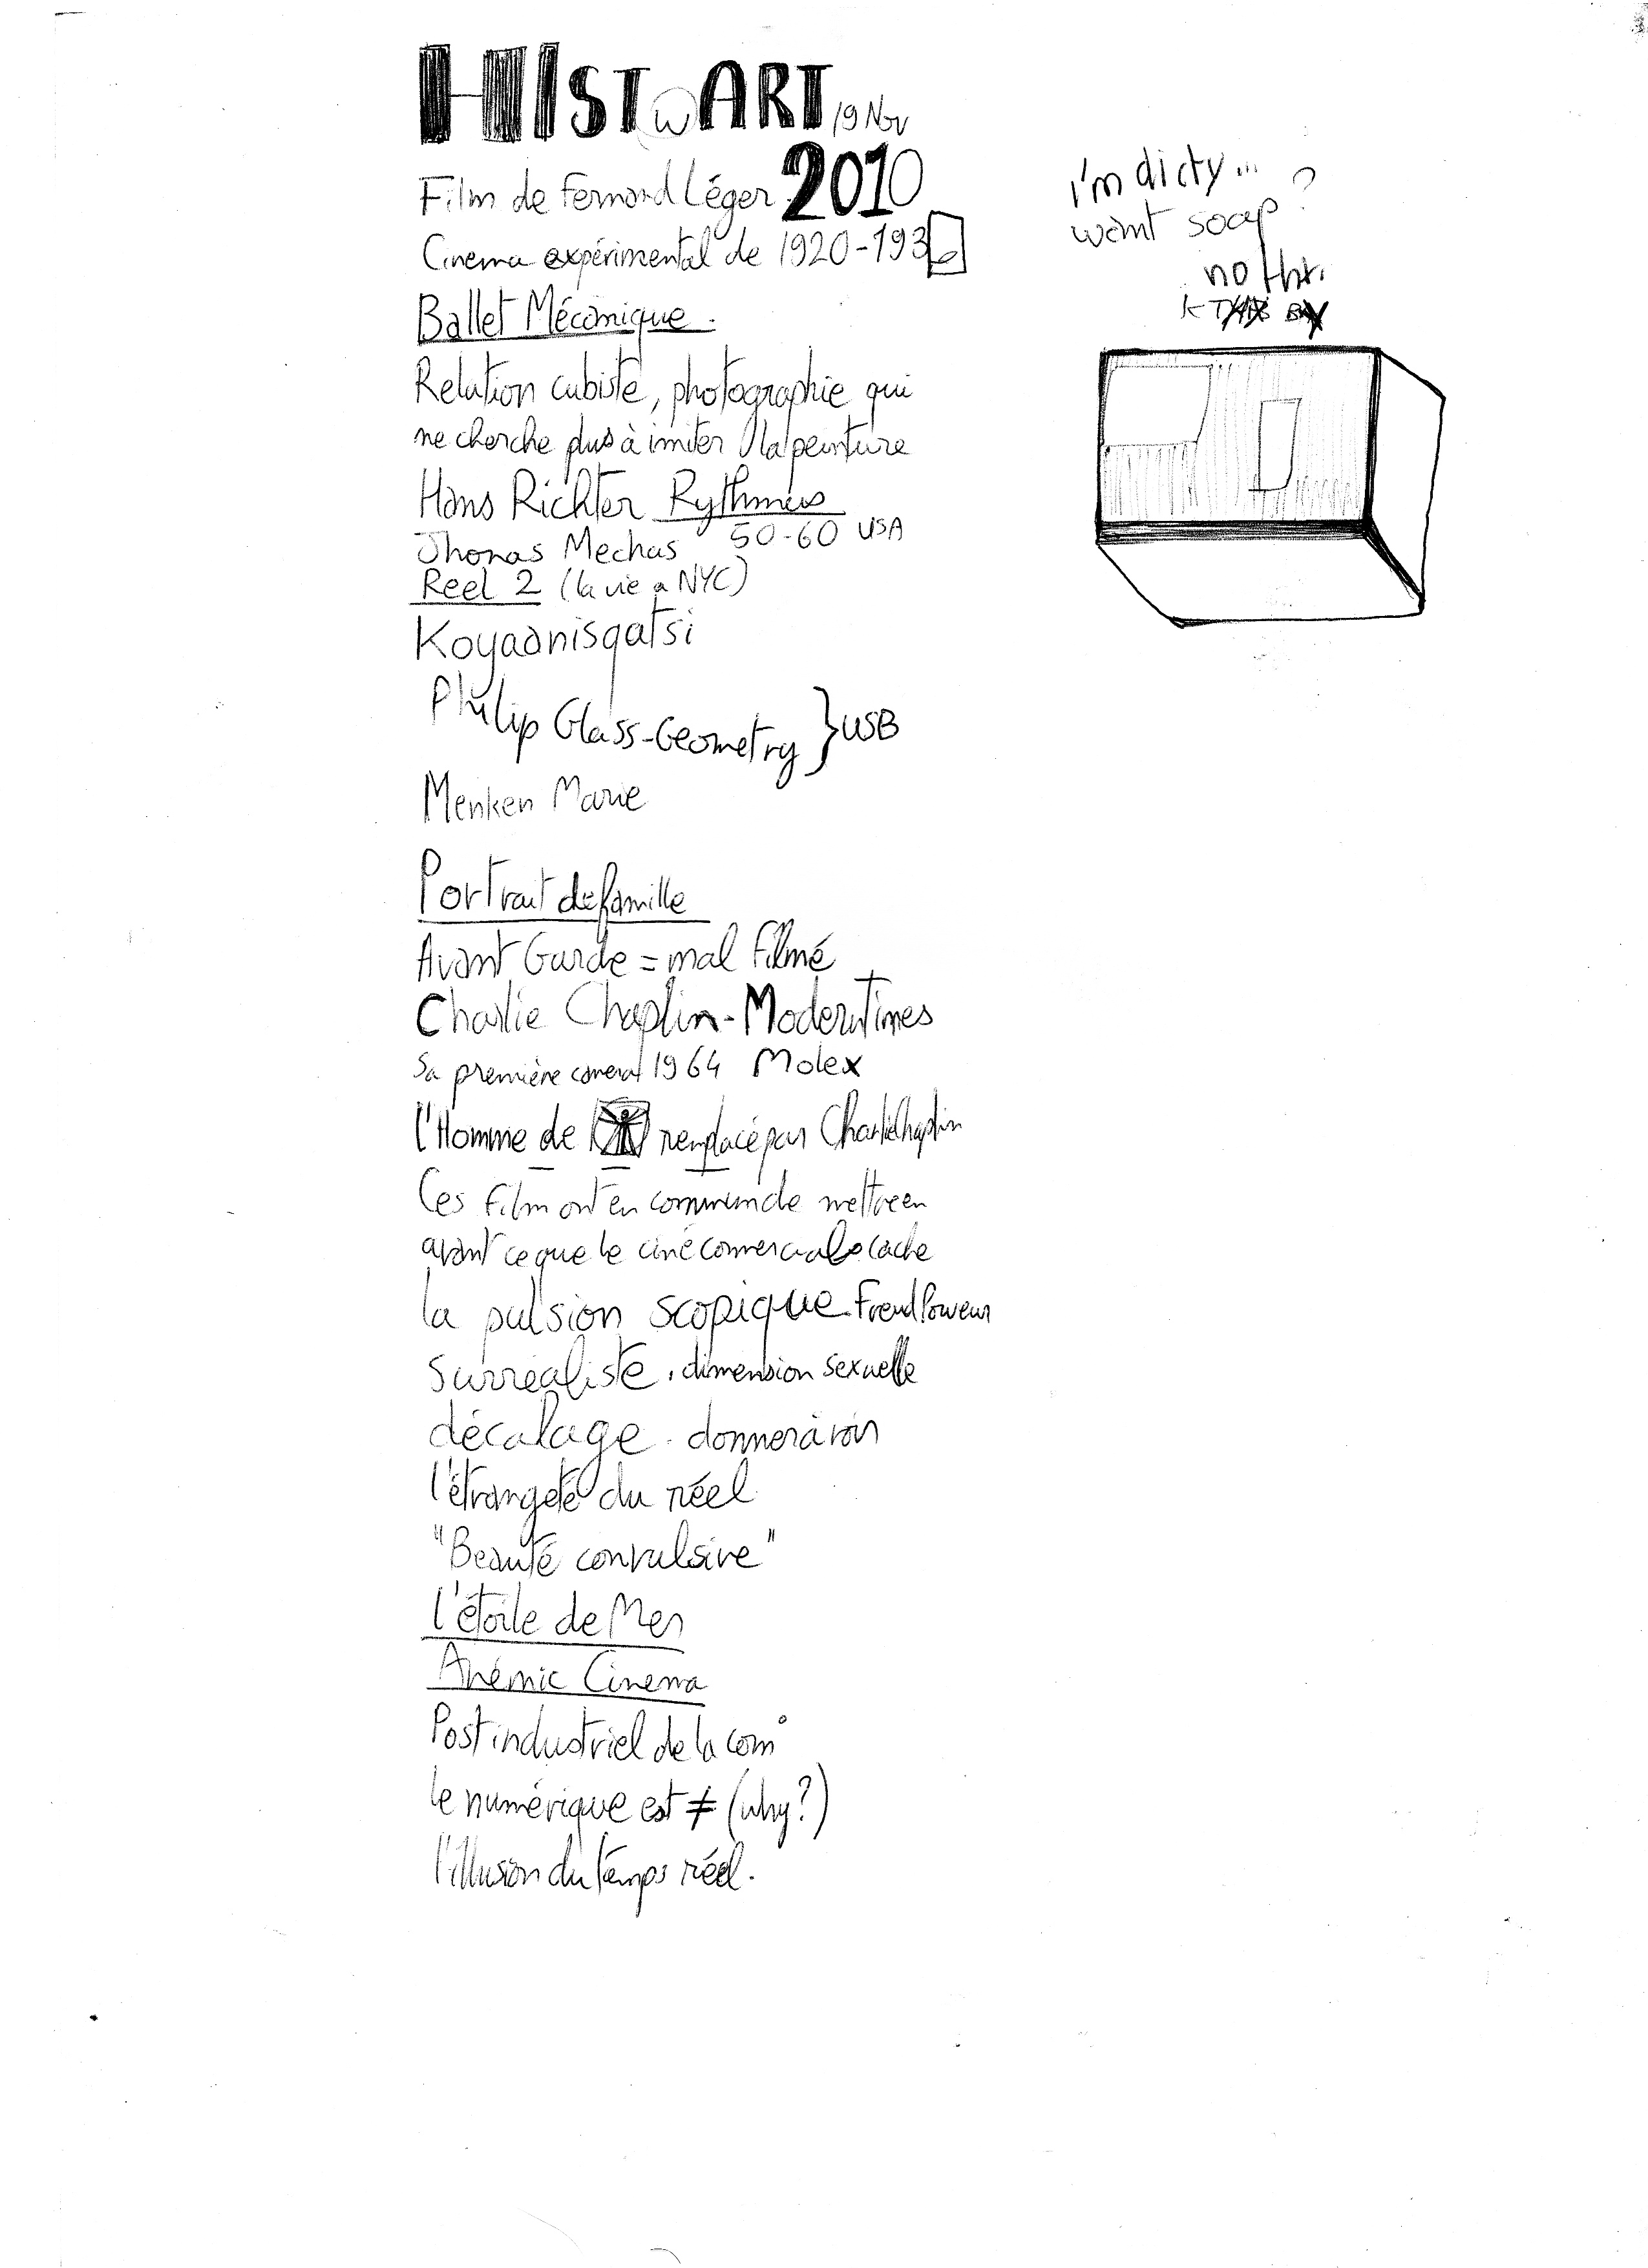 HIST W ART 19 Nov
2010
Film de Fernand Léger.
Cinema expérimental de 1920-1936
Ballet Mécanique.
Relation cubiste, photographie qui
ne cherche plus à imiter la peinture
Hans Richter Rythmus
Jhonas Mechas 50-60 USA
Reel 2 (la vie a NYC)
Koyaanisqatsi
Philip Glass-Geometry } USB
Menken Marie
Portrait de famille
Avant Garde = mal filmé
Charlie Chaplin-Modern Times
Sa première camera 1964 Molex
l'Homme de remplacé par Charlie Chaplin
Ces film ont en commun de mettre en
avant ce que le ciné comercial cache
la pulsion scopique. Freud
Surréaliste. dimension sexuelle
décalage. donner à voir
l'étrangeté du réel
"Beauté convulsive"
l'étoile de Mer
Anémic Cinema
Post industriel de la com°
le numérique est ≠ (why?)
l'illusion du temps réel.
i'm dirty...
want soap ?